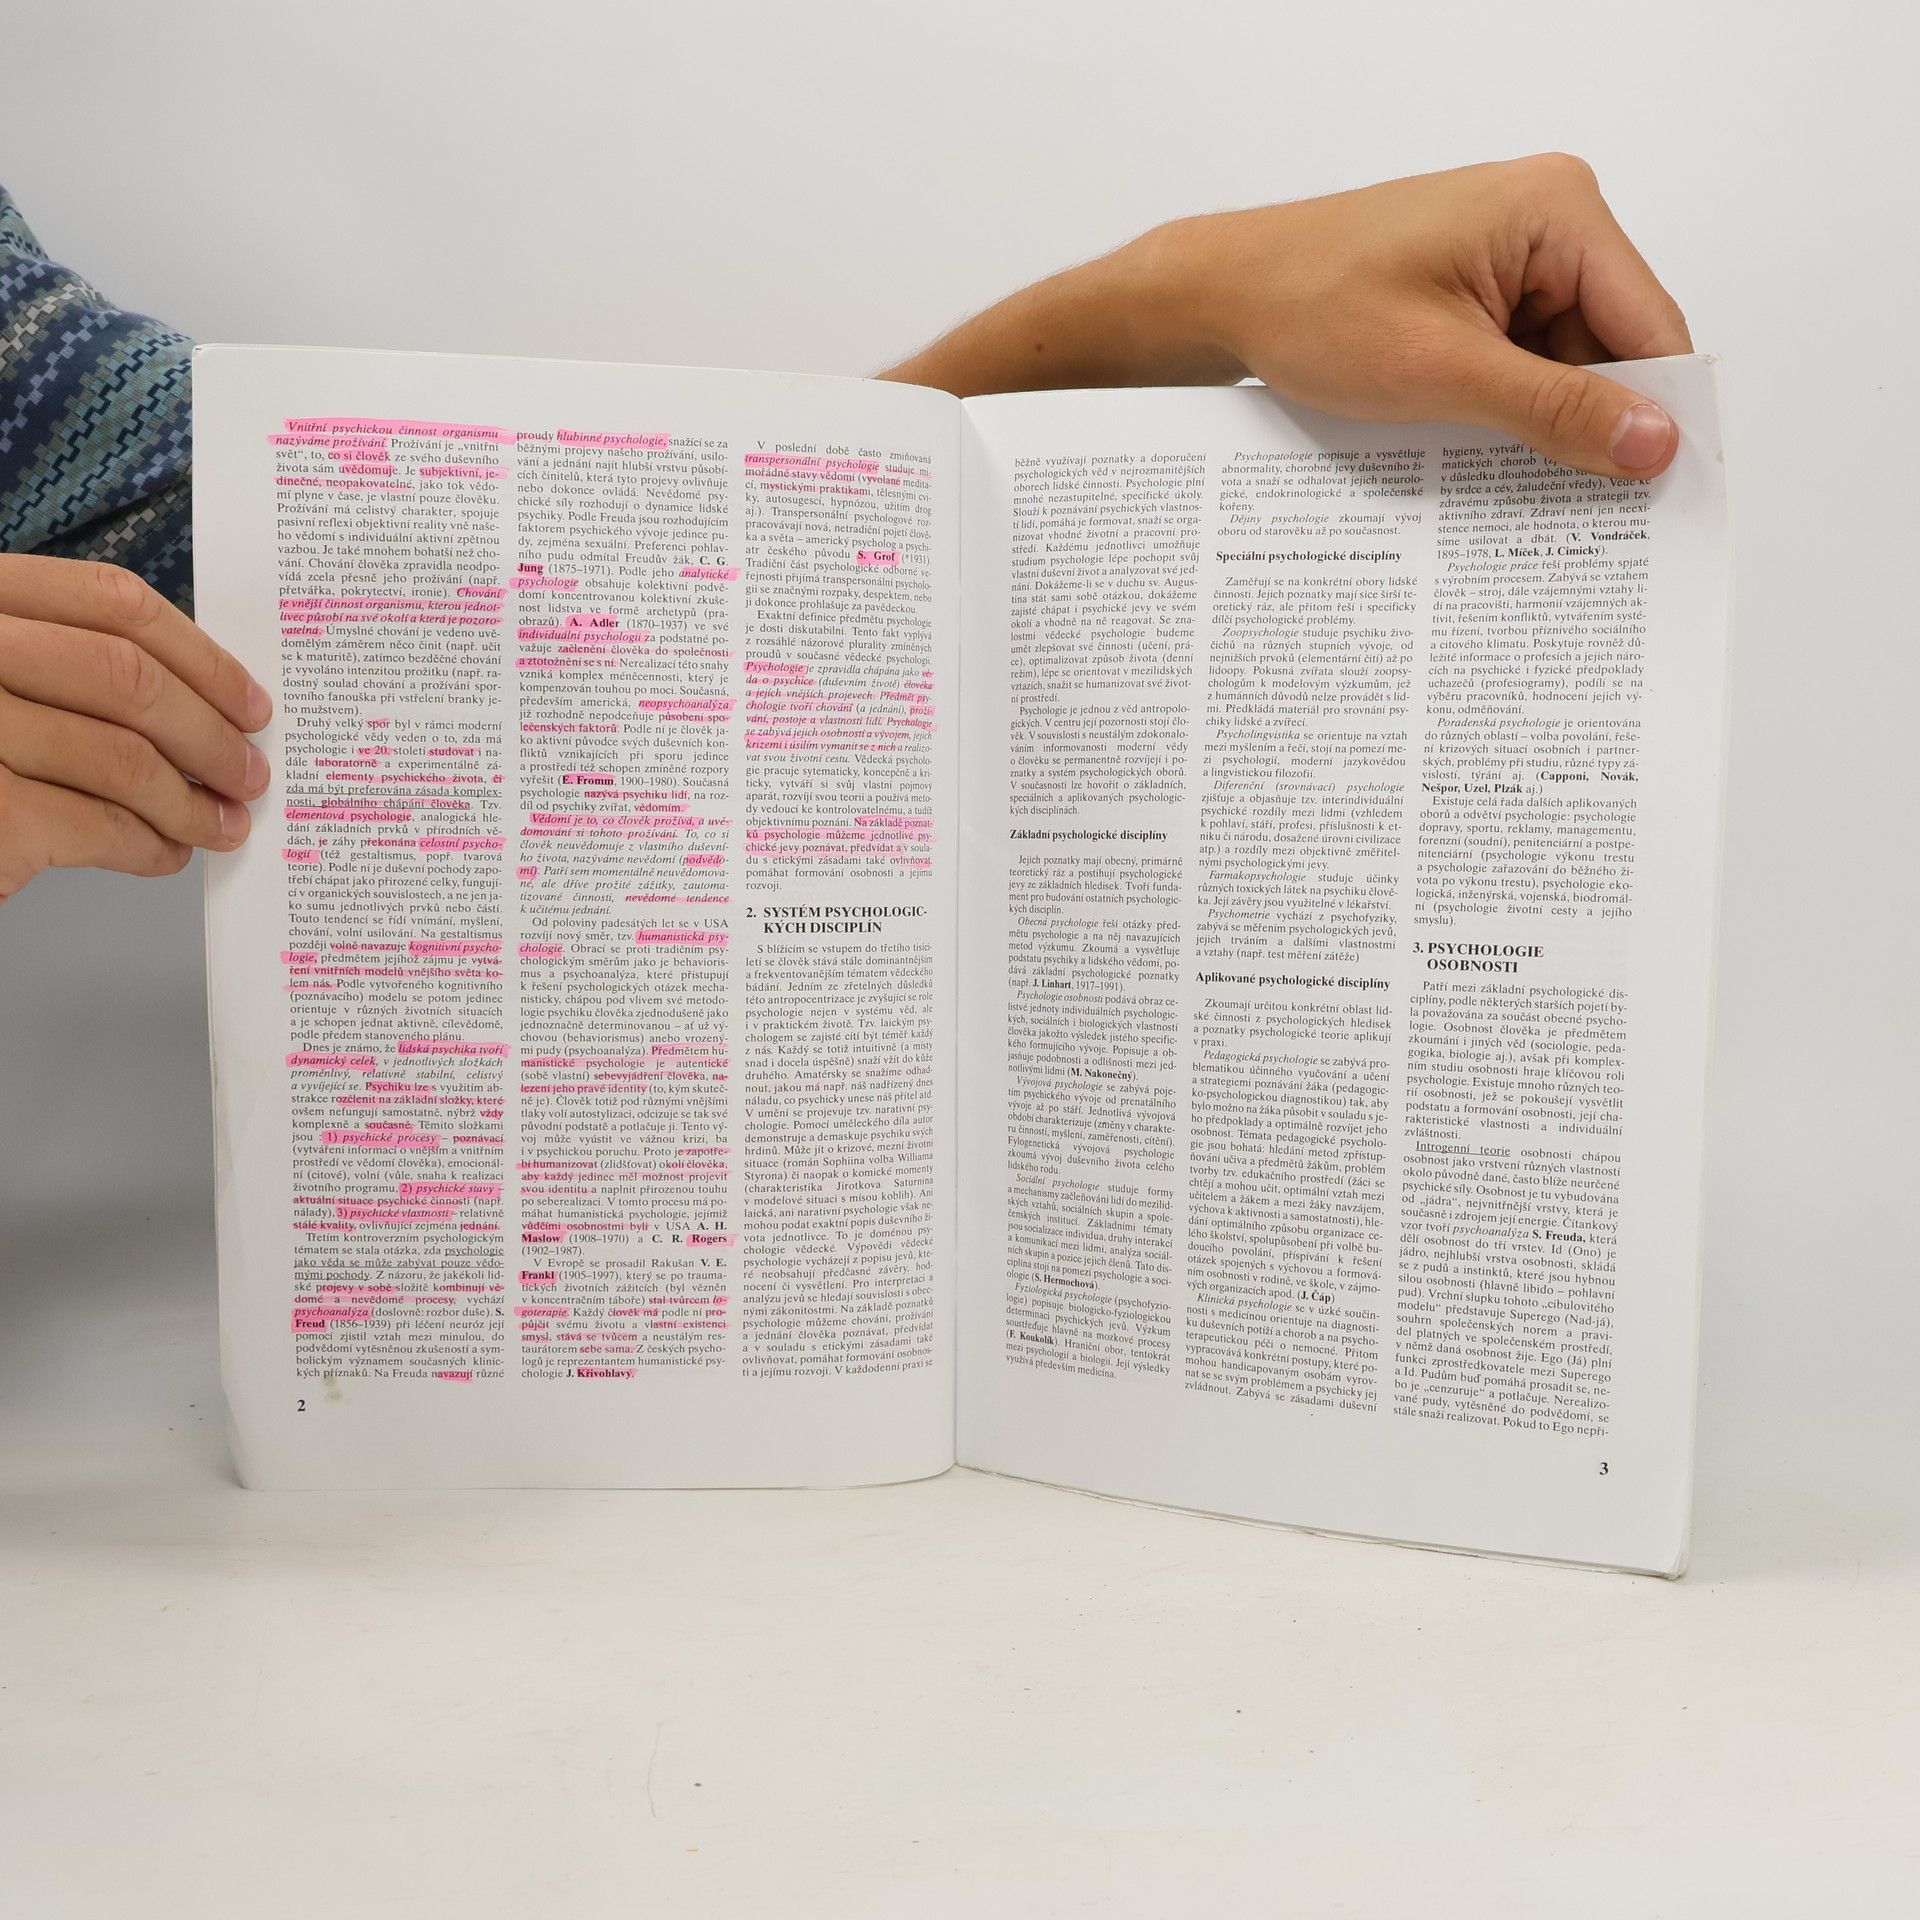 Vnitřní psychickou činnost organismu
nazýváme prožívání. Prožívání je „vnitřní
svět“, to, co si člověk ze svého duševního
života sám uvědomuje. Je subjektivní, je-
dinečné, neopakovatelné, jako tok vědo-
mí plyne v čase, je vlastní pouze člověku.
Prožívání má celistvý charakter, spojuje
pasivní reflexi objektivní reality vně naše-
ho vědomí s individuální aktivní zpětnou
vazbou. Je také mnohem bohatší než cho-
vání. Chování člověka zpravidla neodpo-
vídá zcela přesně jeho prožívání (např.
přetvářka, pokrytectví, ironie). Chování
je vnější činnost organismu, kterou jednot-
livec působí na své okolí a která je pozoro-
vatelná. Úmyslné chování je vedeno uvě-
domělým záměrem něco činit (např. učit
se k maturitě), zatímco bezděčné chování
je vyvoláno intenzitou prožitku (např. ra-
dostný soulad chování a prožívání spor-
tovního fanouška při vstřelení branky je-
ho mužstvem).
Druhý velký spor byl v rámci moderní
psychologické vědy veden o to, zda má
psychologie i ve 20. století studovat i na-
dále laboratorně a experimentálně zá-
kladní elementy psychického života, či
zda má být preferována zásada komplex-
nosti, globálního chápání člověka. Tzv.
elementová psychologie, analogická hle-
dání základních prvků v přírodních vě-
dách, je záhy překonána celostní psycho-
logií (též gestaltismus, popř. tvarová
teorie). Podle ní je duševní pochody zapo-
třebí chápat jako přirozené celky, fungují-
cí v organických souvislostech, a ne jen ja-
ko sumu jednotlivých prvků nebo částí.
Touto tendencí se řídí vnímání, myšlení,
chování, volní usilování. Na gestaltismus
později volně navazuje kognitivní psycho-
logie, předmětem jejíhož zájmu je vytvá-
ření vnitřních modelů vnějšího světa ko-
lem nás. Podle vytvořeného kognitivního
(poznávacího) modelu se potom jedinec
orientuje v různých životních situacích
a je schopen jednat aktivně, cílevědomě,
podle předem stanoveného plánu.
Dnes je známo, že lidská psychika tvoří
dynamický celek, v jednotlivých složkách
proměnlivý, relativně stabilní, celistvý
a vyvíjející se. Psychiku lze s využitím ab-
strakce rozčlenit na základní složky, které
ovšem nefungují samostatně, nýbrž vždy
komplexně a současně. Těmito složkami
jsou : 1) psychické procesy – poznávací
(vytváření informací o vnějším a vnitřním
prostředí ve vědomí člověka), emocionál-
ní (citové), volní (vůle, snaha k realizaci
životního programu, 2) psychické stavy –
aktuální situace psychické činnosti (např.
nálady), 3) psychické vlastnosti – relativně
stálé kvality, ovlivňující zejména jednání.
Třetím kontroverzním psychologickým
tématem se stala otázka, zda psychologie
jako věda se může zabývat pouze vědo-
mými pochody. Z názoru, že jakékoli lid-
ské projevy v sobě složitě kombinují vě-
domé a nevědomé procesy, vychází
psychoanalýza (doslovně: rozbor duše). S.
Freud (1856–1939) při léčení neuróz její
pomocí zjistil vztah mezi minulou, do
podvědomí vytěsněnou zkušeností a sym-
bolickým významem současných klinic-
kých příznaků. Na Freuda navazují různé
2
proudy hlubinné psychologie, snažící se za
běžnými projevy našeho prožívání, usilo-
vání a jednání najít hlubší vrstvu působí-
cích činitelů, která tyto projevy ovlivňuje
nebo dokonce ovládá. Nevědomé psy-
chické síly rozhodují o dynamice lidské
psychiky. Podle Freuda jsou rozhodujícím
faktorem psychického vývoje jedince pu-
dy, zejména sexuální. Preferenci pohlav-
ního pudu odmítal Freudův žák, C. G.
Jung (1875–1971). Podle jeho analytické
psychologie obsahuje kolektivní podvě-
domí koncentrovanou kolektivní zkuše-
nost lidstva ve formě archetypů (pra-
obrazů). A. Adler (1870–1937) ve své
individuální psychologii za podstatné po-
važuje začlenění člověka do společnosti
a ztotožnění se s ní. Nerealizací této snahy
vzniká komplex méněcennosti, který je
kompenzován touhou po moci. Současná,
především americká, neopsychoanalýza
již rozhodně nepodceňuje působení spo-
lečenských faktorů. Podle ní je člověk ja-
ko aktivní původce svých duševních kon-
fliktů vznikajících při sporu jedince
a prostředí též schopen zmíněné rozpory
vyřešit (E. Fromm, 1900–1980). Současná
psychologie nazývá psychiku lidí, na roz-
díl od psychiky zvířat, vědomím.
Vědomí je to, co člověk prožívá, a uvě-
domování si tohoto prožívání. To, co si
člověk neuvědomuje z vlastního duševní-
ho života, nazýváme nevědomí (podvědo-
mí). Patří sem momentálně neuvědomova-
né, ale dříve prožité zážitky, zautoma-
tizované činnosti, nevědomé tendence
k učitému jednání.
Od poloviny padesátých let se v USA
rozvíjí nový směr, tzv. humanistická psy-
chologie. Obrací se proti tradičním psy-
chologickým směrům jako je behavioris-
mus a psychoanalýza, které přistupují
k řešení psychologických otázek mecha-
nisticky, chápou pod vlivem své metodo-
logie psychiku člověka zjednodušeně jako
jednoznačně determinovanou – ať už vý-
chovou (behaviorismus) anebo vrozený-
mi pudy (psychoanalýza). Předmětem hu-
manistické psychologie je autentické
(sobě vlastní) sebevyjádření člověka, na-
lezení jeho pravé identity (to, kým skuteč-
ně je). Člověk totiž pod různými vnějšími
tlaky volí autostylizaci, odcizuje se tak své
původní podstatě a potlačuje ji. Tento vý-
voj může vyústit ve vážnou krizi, ba
i v psychickou poruchu. Proto je zapotře-
bí humanizovat (zlidšťovat) okolí člověka,
aby každý jedinec měl možnost projevit
svou identitu a naplnit přirozenou touhu
po seberealizaci. V tomto procesu má po-
máhat humanistická psychologie, jejímiž
vůdčími osobnostmi byli v USA A. H.
Maslow (1908–1970) a C. R. Rogers
(1902–1987).
V Evropě se prosadil Rakušan V. E.
Frankl (1905–1997), který se po trauma-
tických životních zážitcích (byl vězněn
v koncentračním táboře) stal tvůrcem lo-
goterapie. Každý člověk má podle ní pro-
půjčit svému životu a vlastní existenci
smysl, stává se tvůrcem a neustálým res-
taurátorem sebe sama. Z českých psycho-
logů je reprezentantem humanistické psy-
chologie J. Křivohlavý.
V poslední době často zmiňovaná
transpersonální psychologie studuje mi-
mořádné stavy vědomí (vyvolané medita-
cí, mystickými praktikami, tělesnými cvi-
ky, autosugescí, hypnózou, užitím drog
aj.). Transpersonální psychologové roz-
pracovávají nová, netradiční pojetí člově-
ka a světa – americký psycholog a psychi-
atr českého původu S. Grof (*1931).
Tradiční část psychologické odborné ve-
řejnosti přijímá transpersonální psycholo-
gii se značnými rozpaky, despektem, nebo
ji dokonce prohlašuje za pavědeckou.
Exaktní definice předmětu psychologie
je dosti diskutabilní. Tento fakt vyplývá
z rozsáhlé názorové plurality zmíněných
proudů v současné vědecké psychologii.
Psychologie je zpravidla chápána jako vě-
da o psychice (duševním životě) člověka
a jejích vnějších projevech. Předmět psy-
chologie tvoří chování (a jednání), proží-
vání, postoje a vlastnosti lidí. Psychologie
se zabývá jejich osobností a vývojem, jejich
krizemi i úsilím vymanit se z nich a realizo-
vat svou životní cestu. Vědecká psycholo-
gie pracuje sytematicky, koncepčně a kri-
ticky, vytváří si svůj vlastní pojmový
aparát, rozvíjí svou teorii a používá meto-
dy vedoucí ke kontrolovatelnému, a tudíž
objektivnímu poznání. Na základě poznat-
ků psychologie můžeme jednotlivé psy-
chické jevy poznávat, předvídat a v soula-
du s etickými zásadami také ovlivňovat,
pomáhat formování osobnosti a jejímu
rozvoji.
2. SYSTÉM PSYCHOLOGIC-
KÝCH DISCIPLÍN
S blížícím se vstupem do třetího tisíci-
letí se člověk stává stále dominantnějším
a frekventovanějším tématem vědeckého
bádání. Jedním ze zřetelných důsledků
této antropocentrizace je zvyšující se role
psychologie nejen v systému věd, ale
i v praktickém životě. Tzv. laickým psy-
chologem se zajisté cítí být téměř každý
z nás. Každý se totiž intuitivně (a místy
snad i docela úspěšně) snaží vžít do kůže
druhého. Amatérsky se snažíme odhad-
nout, jakou má např. náš nadřízený dnes
náladu, co psychicky unese náš přítel atd.
V umění se projevuje tzv. narativní psy-
chologie. Pomocí uměleckého díla autor
demonstruje a demaskuje psychiku svých
hrdinů. Může jít o krizové, mezní životní
situace (román Sophiina volba Williama
Styrona) či naopak o komické momenty
(charakteristika Jirotkova Saturnina
v modelové situaci s mísou koblih). Ani
laická, ani narativní psychologie však ne-
mohou podat exaktní popis duševního ži-
vota jednotlivce. To je doménou psy-
chologie vědecké. Výpovědi vědecké
psychologie vycházejí z popisu jevů, kte-
ré neobsahují předčasné závěry, hod-
nocení či vysvětlení. Pro interpretaci a
analýzu jevů se hledají souvislosti s obec-
nými zákonitostmi. Na základě poznatků
psychologie můžeme chování, prožívání
a jednání člověka poznávat, předvídat
a v souladu s etickými zásadami také
ovlivňovat, pomáhat formování osobnos-
ti a jejímu rozvoji. V každodenní praxi se
běžně využívají poznatky a doporučení
psychologických věd v nejrozmanitějších
oborech lidské činnosti. Psychologie plní
mnohé nezastupitelné, specifické úkoly.
Slouží k poznávání psychických vlastnos-
tí lidí, pomáhá je formovat, snaží se orga-
nizovat vhodné životní a pracovní pro-
středí. Každému jednotlivci umožňuje
studium psychologie lépe pochopit svůj
vlastní duševní život a analyzovat své jed-
nání. Dokážeme-li se v duchu sv. Augus-
tina stát sami sobě otázkou, dokážeme
zajisté chápat i psychické jevy ve svém
okolí a vhodně na ně reagovat. Se zna-
lostmi vědecké psychologie budeme
umět zlepšovat své činnosti (učení, prá-
ce), optimalizovat způsob života (denní
režim), lépe se orientovat v mezilidských
vztazích, snažit se humanizovat své život-
ní prostředí.
Psychologie je jednou z věd antropolo-
gických. V centru její pozornosti stojí člo-
věk. V souvislosti s neustálým zdokonalo-
váním informovanosti moderní vědy
o člověku se permanentně rozvíjejí i po-
znatky a systém psychologických oborů.
V současnosti lze hovořit o základních,
speciálních a aplikovaných psychologic-
kých disciplínách.
Základní psychologické disciplíny
Jejich poznatky mají obecný, primárně
teoretický ráz a postihují psychologické
jevy ze základních hledisek. Tvoří funda-
ment pro budování ostatních psychologic-
kých disciplin.
Obecná psychologie řeší otázky před-
mětu psychologie a na něj navazujících
metod výzkumu. Zkoumá a vysvětluje
podstatu psychiky a lidského vědomí, po-
dává základní psychologické poznatky
(např. J. Linhart, 1917–1991).
Psychologie osobnosti podává obraz ce-
listvé jednoty individuálních psychologic-
kých, sociálních i biologických vlastností
člověka jakožto výsledek jistého specific-
kého formujícího vývoje. Popisuje a ob-
jasňuje podobnosti a odlišnosti mezi jed-
notlivými lidmi (M. Nakonečný).
Vývojová psychologie se zabývá poje-
tím psychického vývoje od prenatálního
vývoje až po stáří. Jednotlivá vývojová
období charakterizuje (změny v charakte-
ru činností, myšlení, zaměřenosti, cítění).
Fylogenetická vývojová psychologie
zkoumá vývoj duševního života celého
lidského rodu.
Sociální psychologie studuje formy
a mechanismy začleňování lidí do mezilid-
ských vztahů, sociálních skupin a spole-
čenských institucí. Základními tématy
jsou socializace individua, druhy interakcí
a komunikací mezi lidmi, analýza sociál-
ních skupin a pozice jejich členů. Tato dis-
ciplína stojí na pomezí psychologie a soci-
ologie (S. Hermochová).
Fyziologická psychologie (psychofyzio-
logie) popisuje biologicko-fyziologickou
determinaci psychických jevů. Výzkum
soustřeďuje hlavně na mozkové procesy
(F. Koukolík). Hraniční obor, tentokrát
mezi psychologií a biologií. Její výsledky
využívá především medicína.
Psychopatologie popisuje a vysvětluje
abnormality, chorobné jevy duševního ži-
vota a snaží se odhalovat jejich neurolo-
gické, endokrinologické a společenské
kořeny.
Dějiny psychologie zkoumají vývoj
oboru od starověku až po současnost.
Speciální psychologické disciplíny
Zaměřují se na konkrétní obory lidské
činnosti. Jejich poznatky mají sice širší te-
oretický ráz, ale přitom řeší i specificky
dílčí psychologické problémy.
Zoopsychologie studuje psychiku živo-
čichů na různých stupních vývoje, od
nejnižších prvoků (elementární čití) až po
lidoopy. Pokusná zvířata slouží zoopsy-
chologům k modelovým výzkumům, jež
z humánních důvodů nelze provádět s lid-
mi. Předkládá materiál pro srovnání psy-
chiky lidské a zvířecí.
Psycholingvistika se orientuje na vztah
mezi myšlením a řečí, stojí na pomezí me-
zi psychologií, moderní jazykovědou
a lingvistickou filozofií.
Diferenční (srovnávací) psychologie
zjišťuje a objasňuje tzv. interindividuální
psychické rozdíly mezi lidmi (vzhledem
k pohlaví, stáří, profesi, příslušnosti k et-
niku či národu, dosažené úrovni civilizace
atp.) a rozdíly mezi objektivně změřitel-
nými psychologickými jevy.
Farmakopsychologie studuje účinky
různých toxických látek na psychiku člově-
ka. Její závěry jsou využitelné v lékařství.
Psychometrie vychází z psychofyziky,
zabývá se měřením psychologických jevů,
jejich trváním a dalšími vlastnostmi
a vztahy (např. test měření zátěže)
Aplikované psychologické disciplíny
Zkoumají určitou konkrétní oblast lid-
ské činnosti z psychologických hledisek
a poznatky psychologické teorie aplikují
v praxi.
Pedagogická psychologie se zabývá pro-
blematikou účinného vyučování a učení
a strategiemi poznávání žáka (pedagogic-
ko-psychologickou diagnostikou) tak, aby
bylo možno na žáka působit v souladu s je-
ho předpoklady a optimálně rozvíjet jeho
osobnost. Témata pedagogické psycholo-
gie jsou bohatá: hledání metod zpřístup-
ňování učiva a předmětů žákům, problém
tvorby tzv. edukačního prostředí (žáci se
chtějí a mohou učit, optimální vztah mezi
učitelem a žákem a mezi žáky navzájem,
výchova k aktivnosti a samostatnosti), hle-
dání optimálního způsobu organizace ce-
lého školství, spolupůsobení při volbě bu-
doucího povolání, přispívání k řešení
otázek spojených s výchovou a formová-
ním osobnosti v rodině, ve škole, v zájmo-
vých organizacích apod. (J. Čáp)
Klinická psychologie se v úzké součin-
nosti s medicínou orientuje na diagnosti-
ku duševních potíží a chorob a na psycho-
terapeutickou péči o nemocné. Přitom
vypracovává konkrétní postupy, které po-
mohou handicapovaným osobám vyrov-
nat se se svým problémem a psychicky jej
zvládnout. Zabývá se zásadami duševní
hygieny, vytváří
matických chorob
v důsledku dlouhodobého
by srdce a cév, žaludeční vředy), Vede ke
zdravému způsobu života a strategii tzv.
aktivního zdraví. Zdraví není jen neexi-
stence nemoci, ale hodnota, o kterou mu-
síme usilovat a dbát. (V. Vondráček,
1895–1978, L. Míček, J. Cimický).
Psychologie práce řeší problémy spjaté
s výrobním procesem. Zabývá se vztahem
člověk – stroj, dále vzájemnými vztahy li-
dí na pracovišti, harmonií vzájemných ak-
tivit, řešením konfliktů, vytvářením systé-
mu řízení, tvorbou příznivého sociálního
a citového klimatu. Poskytuje rovněž dů-
ležité informace o profesích a jejich náro-
cích na psychické i fyzické předpoklady
uchazečů (profesiogramy), podílí se na
výběru pracovníků, hodnocení jejich vý-
konu, odměňování.
Poradenská psychologie je orientována
do různých oblastí – volba povolání, řeše-
ní krizových situací osobních i partner-
ských, problémy při studiu, různé typy zá-
vislostí, týrání aj. (Capponi, Novák,
Nešpor, Uzel, Plzák aj.)
Existuje celá řada dalších aplikovaných
oborů a odvětví psychologie: psychologie
dopravy, sportu, reklamy, managementu,
forenzní (soudní), penitenciární a postpe-
nitenciární (psychologie výkonu trestu
a psychologie zařazování do běžného ži-
vota po výkonu trestu), psychologie eko-
logická, inženýrská, vojenská, biodromál-
ní (psychologie životní cesty a jejího
smyslu).
3. PSYCHOLOGIE
OSOBNOSTI
Patří mezi základní psychologické dis-
ciplíny, podle některých starších pojetí by-
la považována za součást obecné psycho-
logie. Osobnost člověka je předmětem
zkoumání i jiných věd (sociologie, peda-
gogika, biologie aj.), avšak při komplex-
ním studiu osobnosti hraje klíčovou roli
psychologie. Existuje mnoho různých teo-
rií osobnosti, jež se pokoušejí vysvětlit
podstatu a formování osobnosti, její cha-
rakteristické vlastnosti a individuální
zvláštnosti.
Introgenní teorie osobnosti chápou
osobnost jako vrstvení různých vlastností
okolo původně dané, často blíže neurčené
psychické síly. Osobnost je tu vybudována
od „jádra“, nejvnitřnější vrstvy, která je
současně i zdrojem její energie. Čítankový
vzor tvoří psychoanalýza S. Freuda, která
dělí osobnost do tří vrstev. Id (Ono) je
jádro, nejhlubší vrstva osobnosti, skládá
se z pudů a instinktů, které jsou hybnou
silou osobnosti (hlavně libido – pohlavní
pud). Vrchní slupku tohoto „cibulovitého
modelu“ představuje Superego (Nad-já),
souhrn společenských norem a pravi-
del platných ve společenském prostředí,
v němž daná osobnost žije. Ego (Já) plní
funkci zprostředkovatele mezi Superego
a Id. Pudům buď pomáhá prosadit se, ne-
bo je „cenzuruje“ a potlačuje. Nerealizo-
vané pudy, vytěsněné do podvědomí, se
stále snaží realizovat. Pokud to Ego nepři-
3